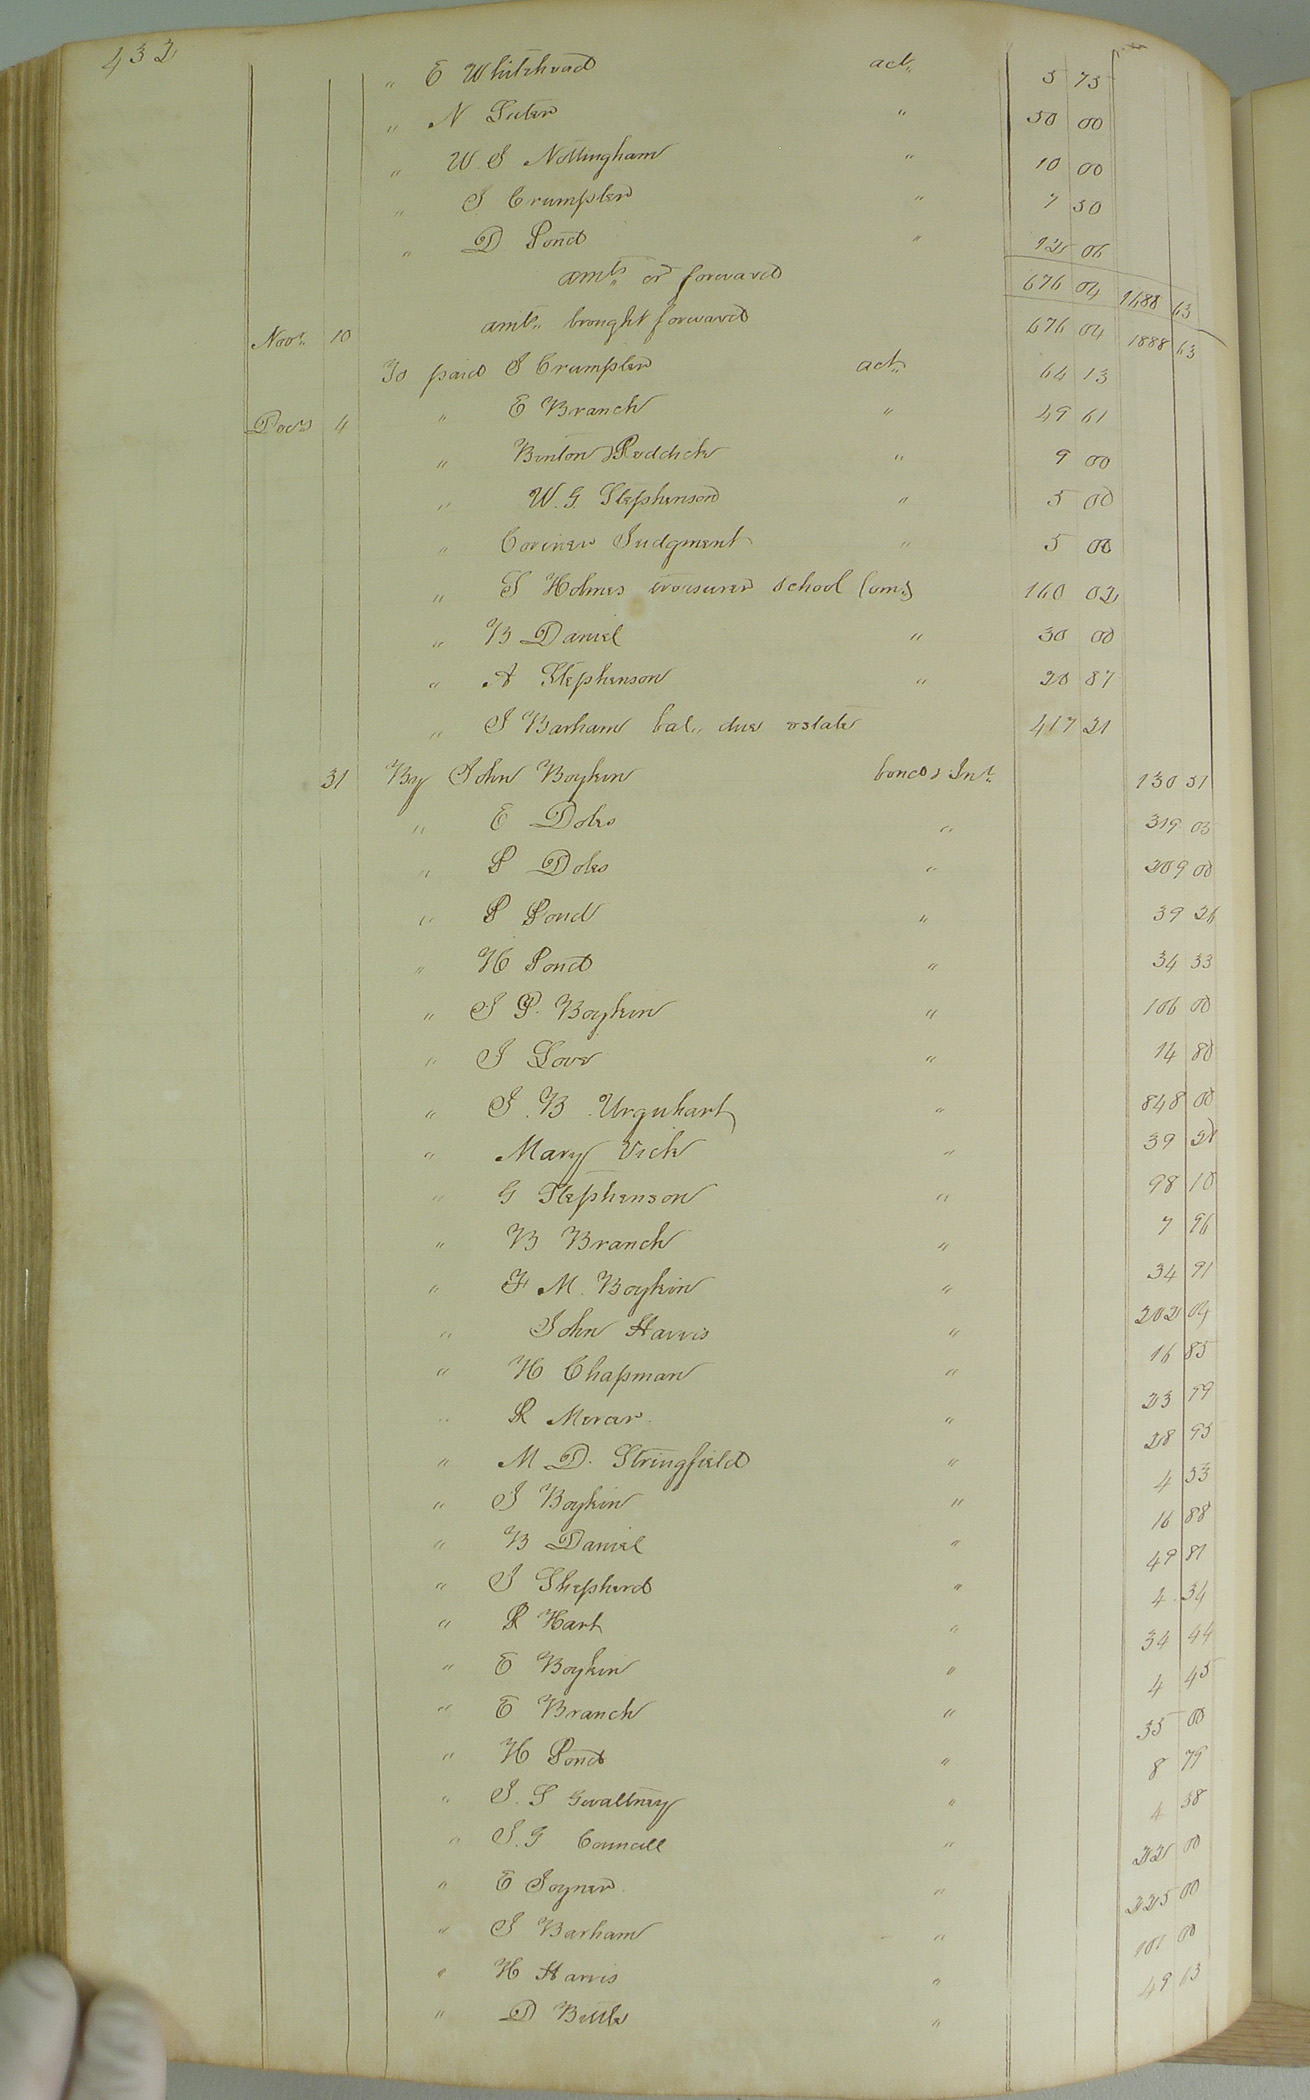 432
" E Whitehead act. 5 75
" N Luter " 50 00
" W. S Nottingham " 10 00
" J Crumpler " 7 50
" D Pond " 12 06
amts. cd forward 676 04 1688 63
Nov. 10 amts. brought forward 676 04 1888 63
To paid J Crumpler act. 64 13
Decr 4 " E Branch " 49 61
" Benton & Reddick " 9 00
" W. G. Stephenson " 5 00
" Judgment " 5 00
" S Holmes school Com. 160 02
" B Daniel " 30 00
" A Stephenson " 20 87
" J Barham bal. due estate 417 21
31 By John Boykin bond & Int. 130 51
" E Doles " 319 03
" P Doles " 209 00
" P Pond " 39 26
" H Pond " 34 33
" S P. Boykin " 106 00
" J Love " 14 80
" J. B. Urquhart " 848 00
" Mary Vick " 39 21
" G Stephenson " 98 10
" B Branch " 7 96
" F M. Boykin " 34 91
" John Harris " 202 04
" H Chapman " 16 85
" R Mercer " 23 99
" M D. Stringfield " 28 95
" J Boykin " 4 33
" B Daniel " 16 88
" J Shepherd " 49 81
" R Hart " 4 34
" E Boykin " 34 44
" E Branch " 4 45
" H Pond " 35 00
" J. S Gwaltney " 8 79
" J. G Councill " 4 38
" E Joyner " 22 00
" J Barham " 225 00
" H Harris " 101 00
" D Bittle " 49 63